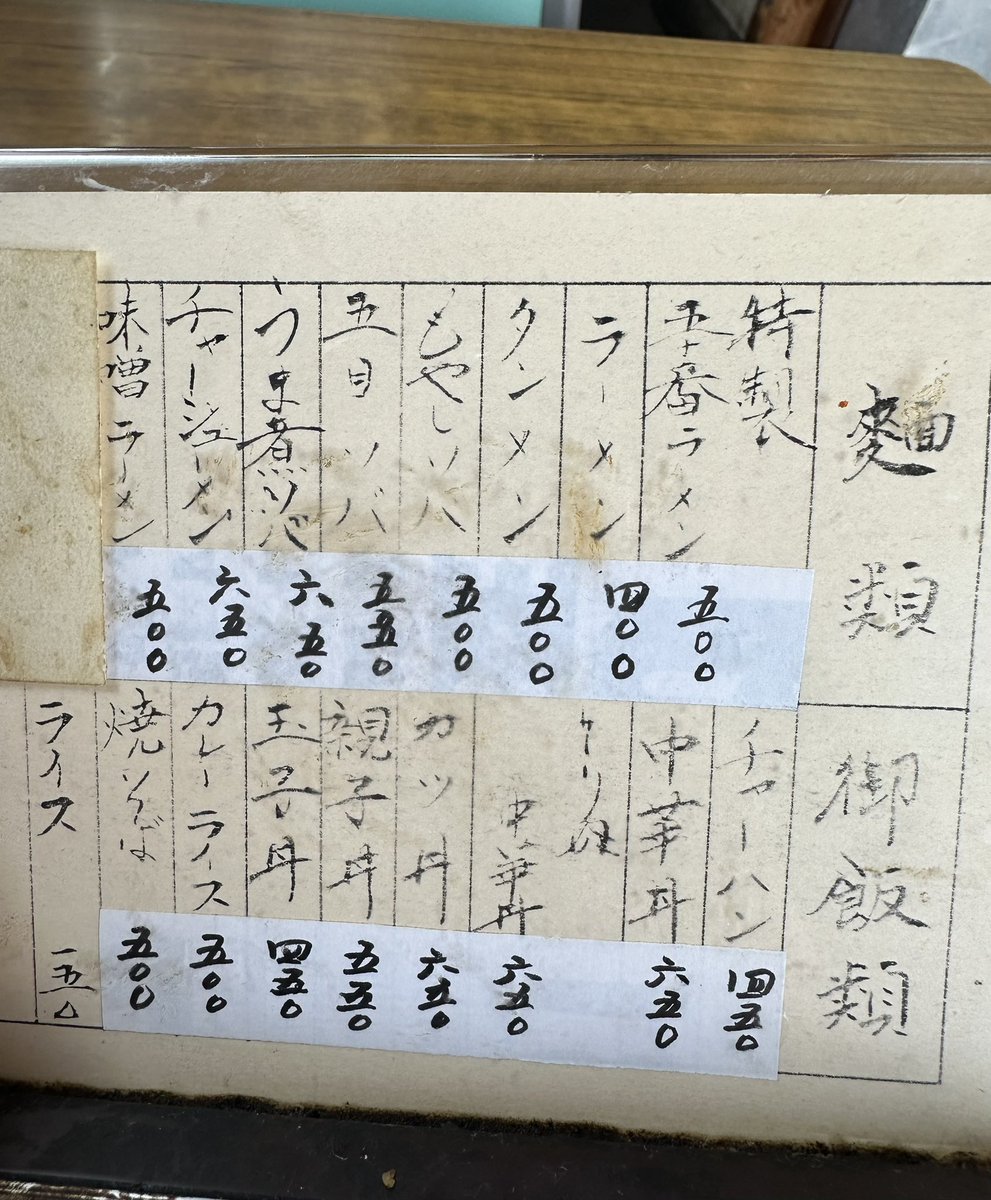 麵類
特製
五十番ラーメン 五〇〇
ラーメン 四〇〇
タンメン 五〇〇
もやしソバ 五〇〇
五目ソバ 五五〇
うま煮ソバ 六五〇
チャージューメン 六五〇
味噌ラーメン 五〇〇
御飯類
チャーハン 四五〇
中華丼 六五〇
中華丼 六五〇
カツ丼 六五〇
親子丼 五五〇
玉子丼 四五〇
カレーライス 五〇〇
焼そば 五〇〇
ライス 一五〇